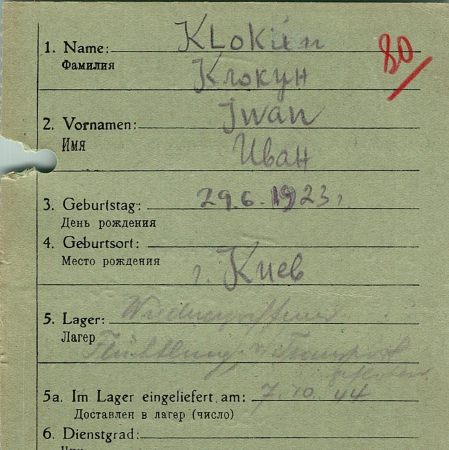 1. Name: KLokun
Фамилия Клокун
80
2. Vornamen: Iwan
Имя Иван
3. Geburtstag: 29.6.1923 г
День рождения
4. Geburtsort:
Место рождения г. Киев
5. Lager:
Лагер Flüchtling v. Transport
5a. Im Lager eingeliefert am: 7.10.44
Доставлен в лагер (число)
6. Dienstgrad: